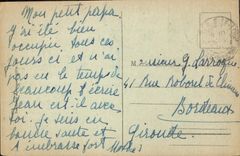 Mon petit papa
J'ai été bien
occupée tous ces
jours ci et n'ai
pas eu le temps de
beaucoup t'écrire
Jean est-il avec
toi. Je suis en
bonne santé et
t'embrasse fort
Monsieur G. Larroque
41 Rue
Bordeaux
Gironde